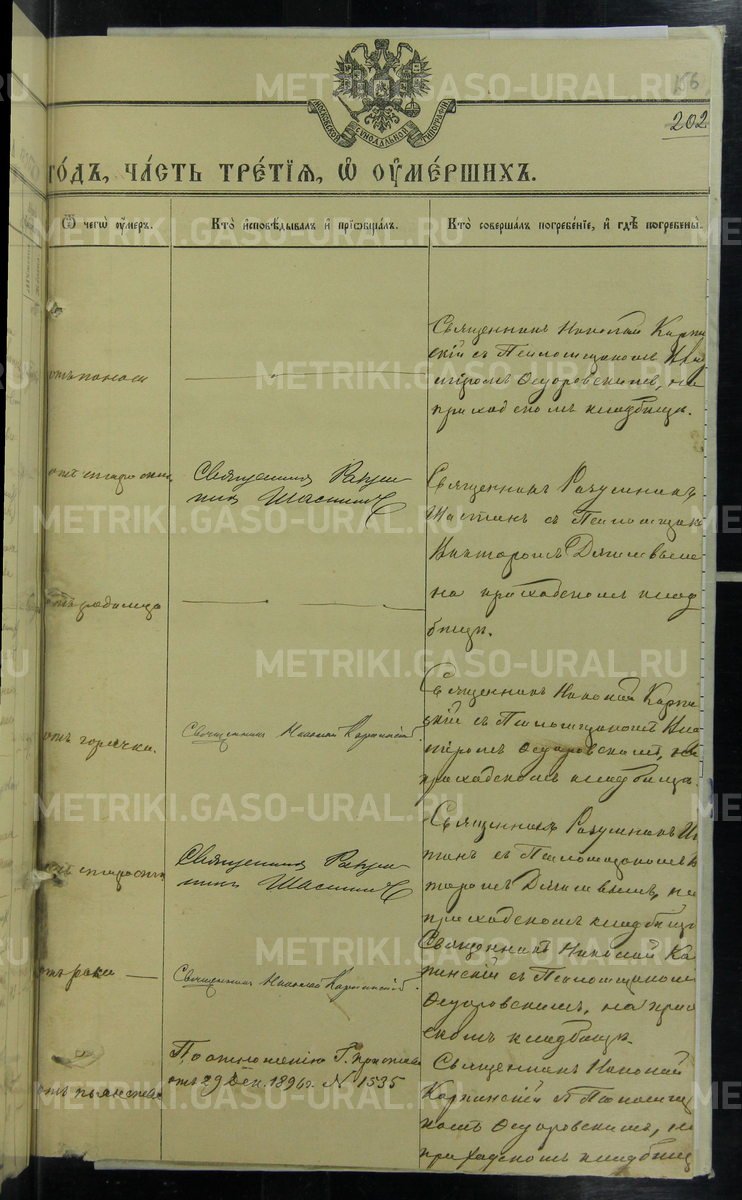 156
202
МОСКОВСКОЙ СѴНОДАЛЬНОЙ ТИПОГРАФІИ
го́дъ, ча́сть тре́тїѧ, ѡ҆ оу҆ме́ршихъ.
Ѿ чегѡ̀ оу҆́меръ.
Кто̀ и҆сповѣ́дывалъ и҆ прїѡбща́лъ.
Кто̀ соверша́лъ погребе́нїе, и҆ гдѣ̀ погребены̀.
отъ поноса
Священникъ Николай Карпи
скій съ Псаломщикомъ
Ѳедоровскимъ, на
приходскомъ кладбищѣ.
отъ старости
Священникъ Разум
никъ Шастинъ
Священникъ Разумникъ
Шастинъ съ Псаломщико
Викторомъ Дягилевымъ
на приходскомъ клад
бищѣ.
отъ родимца
отъ горячки.
Священникъ Николай Карпинскій
Священникъ Николай Карпи
скій съ Псаломщикомъ
Ѳедоровскимъ, на
приходскомъ кладбищѣ.
отъ старости
Священникъ Разум
никъ Шастинъ
Священникъ Разумникъ Ша
тинъ съ Псаломщикомъ В
торомъ Дягилевымъ, на
приходскомъ кладбищѣ
отъ рака
Священникъ Николай Карпинскій
Священникъ Николай Ка
пинскій съ Псаломщикомъ
Ѳедоровскимъ, на прихо
скомъ кладбищѣ.
отъ пьянства
По отношенію Г. Пристава
отъ 29 Дек. 1896 г. N 1535
Священникъ Николай
Карпинскій съ Псаломщи
комъ Ѳедоровскимъ, на
приходскомъ кладбищ
METRIKI.GASO-URAL.RU